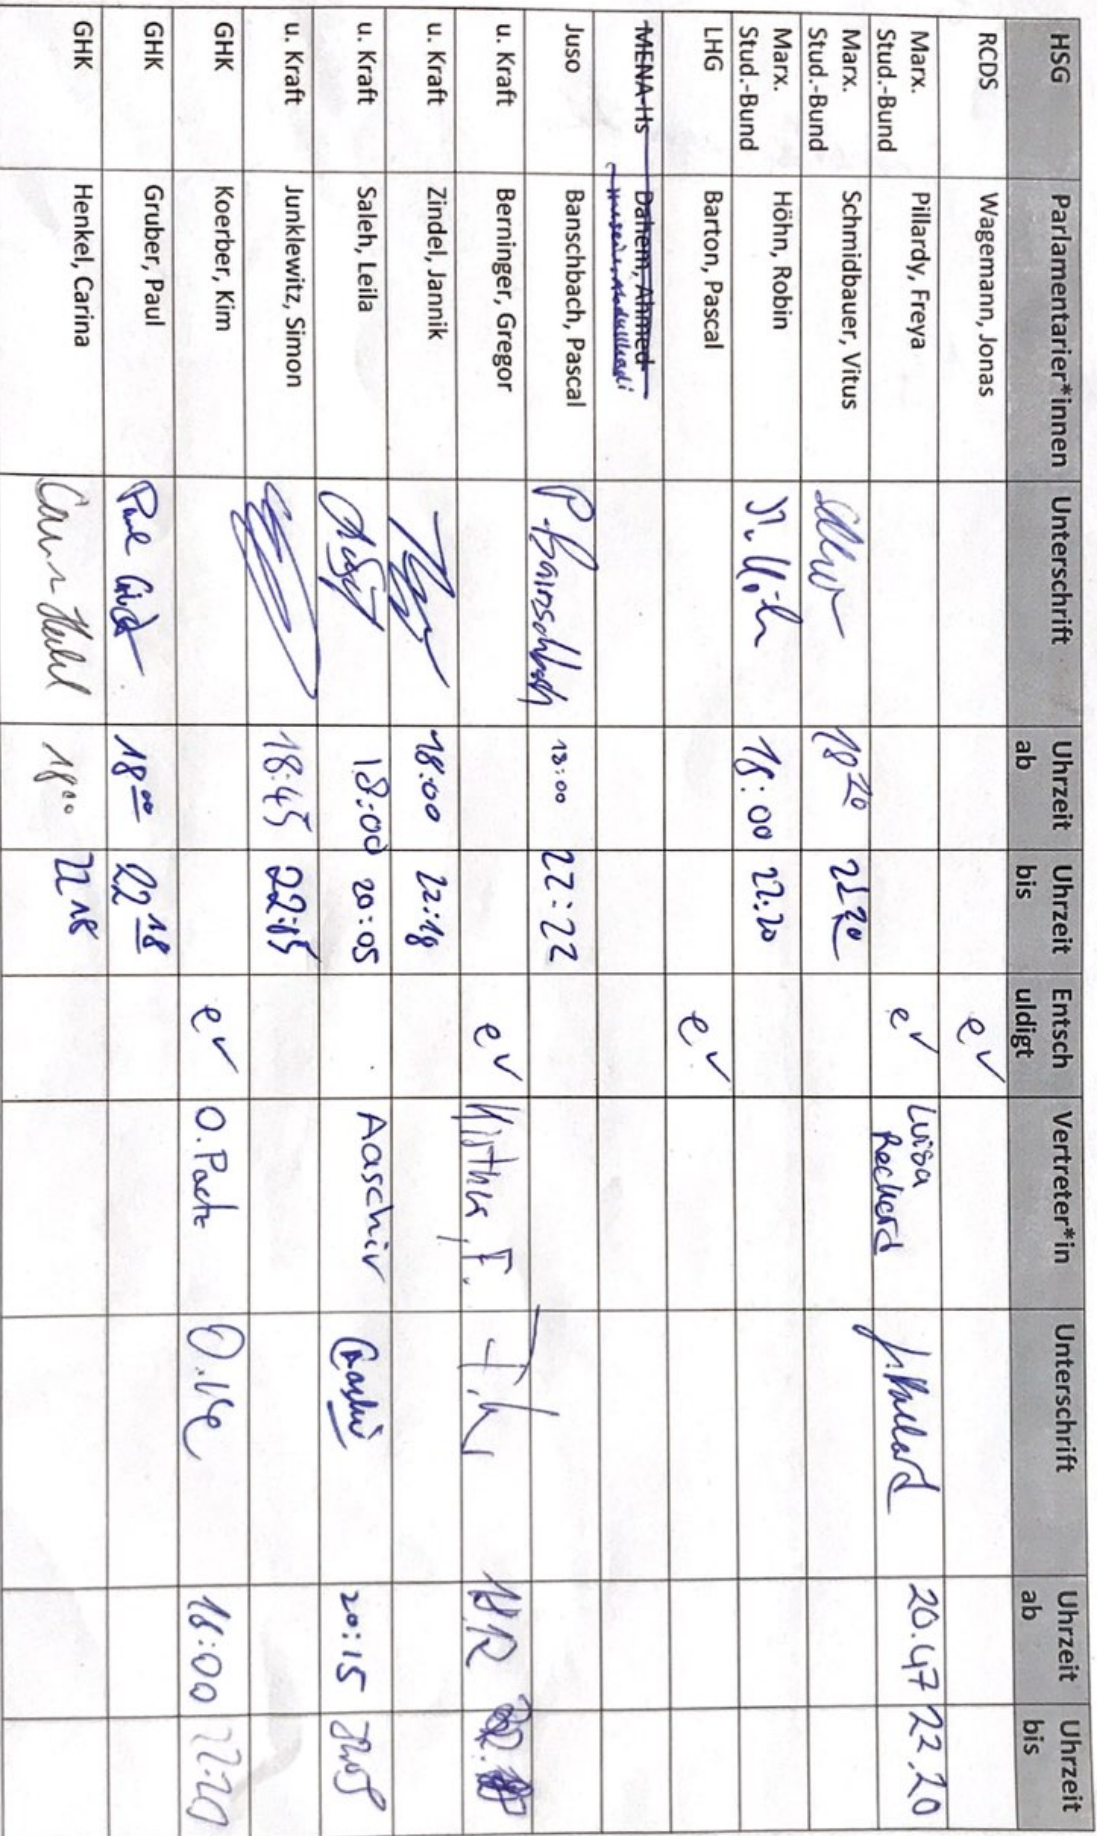 HSG Parlamentarier*innen Unterschrift Uhrzeit ab Uhrzeit bis Entsch uldigt Vertreter*in Unterschrift Uhrzeit ab Uhrzeit bis
RCDS Wagemann, Jonas e✓
Marx. Stud.-Bund Pillardy, Freya e✓ Luisa 20.47 22.20
Marx. Stud.-Bund Schmidbauer, Vitus 18 20 22 20
Marx. Stud.-Bund Höhn, Robin 18:00 22:20
LHG Barton, Pascal e✓
MENA-Hs Dahem, Ahmed
Juso Banschbach, Pascal P. Banschbach 18:00 22:22
u. Kraft Berninger, Gregor e✓
u. Kraft Zindel, Jannik 18:00 22:18
u. Kraft Saleh, Leila 18:00 20:05 Aaschiv 20:15
u. Kraft Junklewitz, Simon 18:45 22:15
GHK Koerber, Kim e✓ 18:00 22:20
GHK Gruber, Paul 18 00 22 18
GHK Henkel, Carina 18 00 22 18